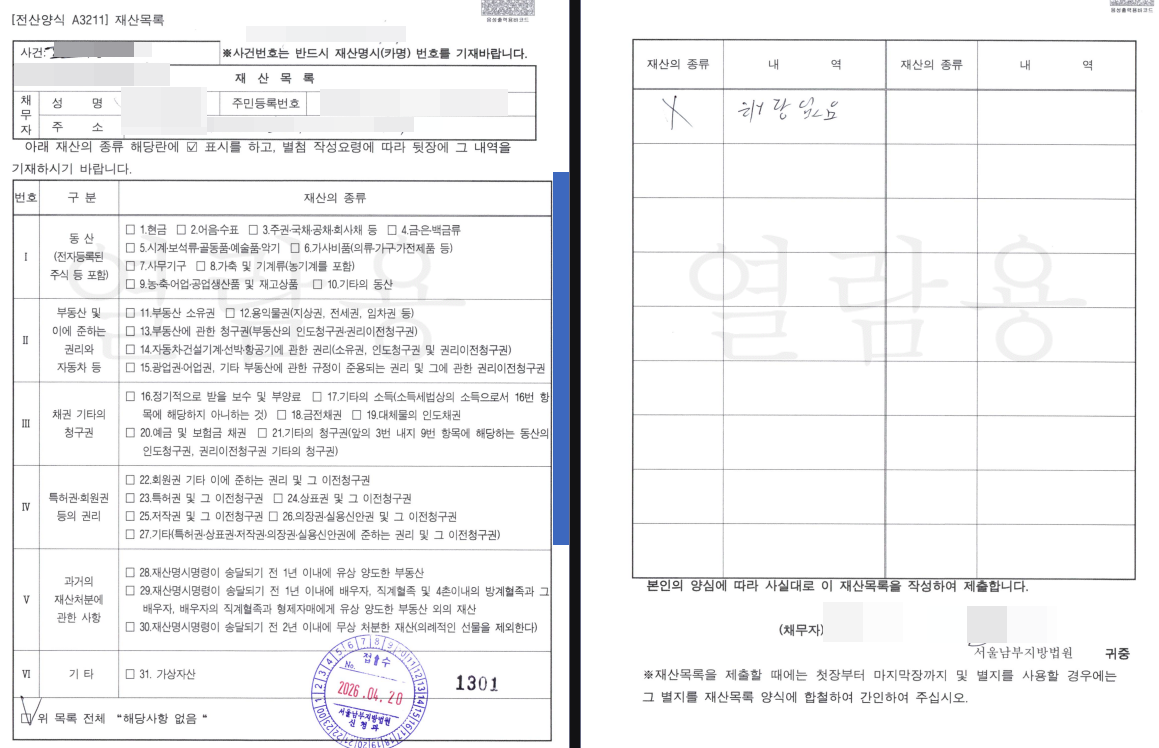 [전산양식 A3211] 재산목록
음성출력용바코드
사건
※사건번호는 반드시 재산명시(카명) 번호를 기재바랍니다.
재 산 목 록
채무자
성 명
주민등록번호
주 소
아래 재산의 종류 해당란에 ☑ 표시를 하고, 별첨 작성요령에 따라 뒷장에 그 내역을
기재하시기 바랍니다.
번호 구 분 재산의 종류
I
동 산
(전자등록된
주식 등 포함)
□ 1.현금 □ 2.어음·수표 □ 3.주권·국채·공채·회사채 등 □ 4.금·은·백금류
□ 5.시계·보석류·골동품·예술품·악기 □ 6.가사비품(의류·가구·가전제품 등)
□ 7.사무기구 □ 8.가축 및 기계류(농기계를 포함)
□ 9.농·축·어업·공업생산품 및 재고상품 □ 10.기타의 동산
II
부동산 및
이에 준하는
권리와
자동차 등
□ 11.부동산 소유권 □ 12.용익물권(지상권, 전세권, 임차권 등)
□ 13.부동산에 관한 청구권(부동산의 인도청구권·권리이전청구권)
□ 14.자동차·건설기계·선박·항공기에 관한 권리(소유권, 인도청구권 및 권리이전청구권)
□ 15.광업권·어업권, 기타 부동산에 관한 규정이 준용되는 권리 및 그에 관한 권리이전청구권
III
채권 기타의
청구권
□ 16.정기적으로 받을 보수 및 부양료 □ 17.기타의 소득(소득세법상의 소득으로서 16번 항
목에 해당하지 아니하는 것) □ 18.금전채권 □ 19.대체물의 인도채권
□ 20.예금 및 보험금 채권 □ 21.기타의 청구권(앞의 3번 내지 9번 항목에 해당하는 동산의
인도청구권, 권리이전청구권 기타의 청구권)
IV
특허권·회원권
등의 권리
□ 22.회원권 기타 이에 준하는 권리 및 그 이전청구권
□ 23.특허권 및 그 이전청구권 □ 24.상표권 및 그 이전청구권
□ 25.저작권 및 그 이전청구권 □ 26.의장권·실용신안권 및 그 이전청구권
□ 27.기타(특허권·상표권·저작권·의장권·실용신안권에 준하는 권리 및 그 이전청구권)
V
과거의
재산처분에
관한 사항
□ 28.재산명시명령이 송달되기 전 1년 이내에 유상 양도한 부동산
□ 29.재산명시명령이 송달되기 전 1년 이내에 배우자, 직계혈족 및 4촌이내의 방계혈족과 그
배우자, 배우자의 직계혈족과 형제자매에게 유상 양도한 부동산 외의 재산
□ 30.재산명시명령이 송달되기 전 2년 이내에 무상 처분한 재산(의례적인 선물을 제외한다)
VI
기 타
□ 31. 가상자산
접수
No.
2026.04.20
서울남부지방법원
신청과
1301
☑ 위 목록 전체 “해당사항 없음“
열람용
음성출력용바코드
재산의 종류 내 역 재산의 종류 내 역
X 해당없음
열람용
본인의 양심에 따라 사실대로 이 재산목록을 작성하여 제출합니다.
(채무자)
서울남부지방법원 귀중
※재산목록을 제출할 때에는 첫장부터 마지막장까지 및 별지를 사용할 경우에는
그 별지를 재산목록 양식에 합철하여 간인하여 주십시오.